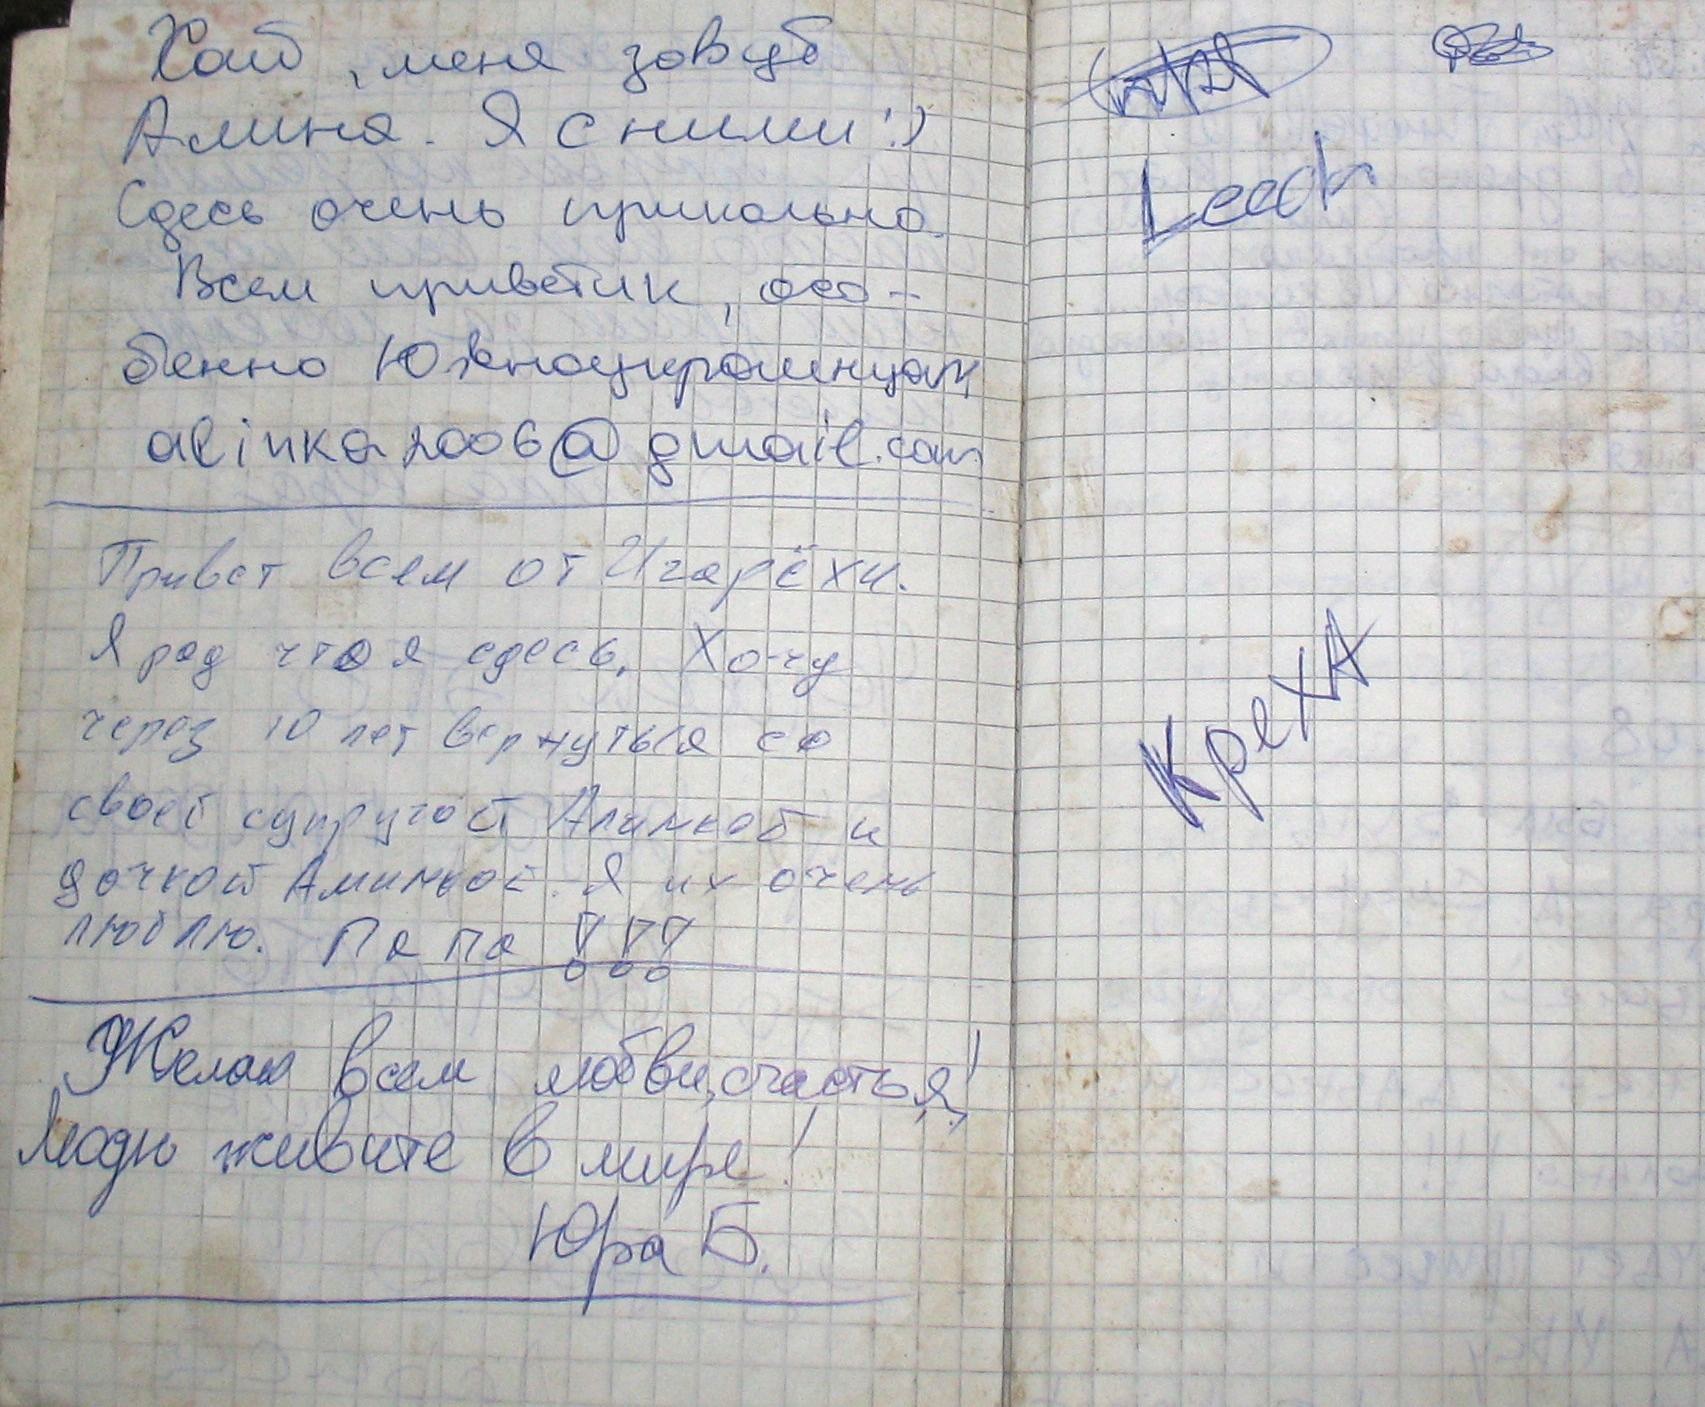 Хай, меня зовут
Амина. Я с ними :)
Сдесь очень прикольно.
Всем приветик, осо-
бенно Южноукраинцам
alinka2006@gmail.com
Привет всем от Игарёхи.
Я рад что я сдесь. Хочу
через 10 лет вернуться со
своей супругой Алинкой и
дочкой Аминкой. Я их очень
люблю. Папа !!!
Желаю всем любви, счастья!
Люди живите в мире!
Юра Б.
КрехА